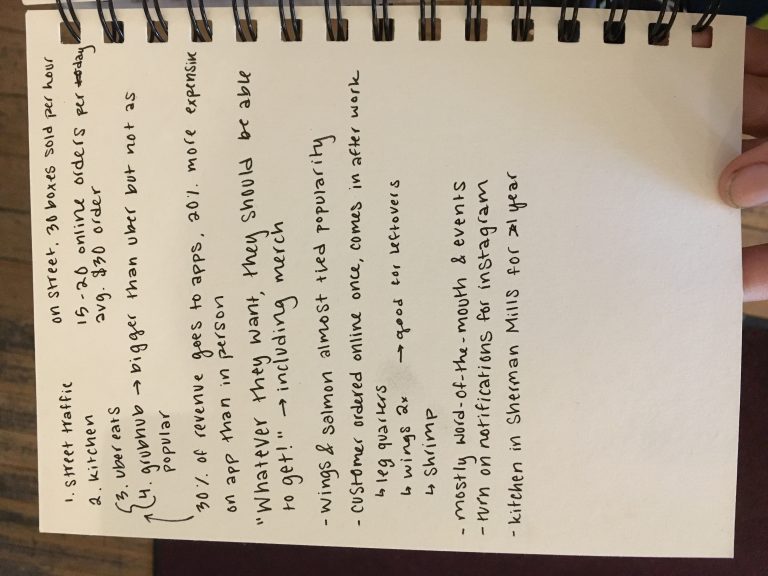 1. street traffic
2. kitchen
3. ubereats
4. grubhub → bigger than uber but not as
popular
on street, 30 boxes sold per hour
15-20 online orders per day
avg. $30 order
30% of revenue goes to apps, 20% more expensive
on app than in person
"Whatever they want, they should be able
to get!" → including merch
- wings & salmon almost tied popularity
- customer ordered online once, comes in after work
↳ leg quarters
↳ wings 2x → good for leftovers
↳ shrimp
- mostly word-of-the-mouth & events
- turn on notifications for instagram
- kitchen in Sherman Mills for 1 year